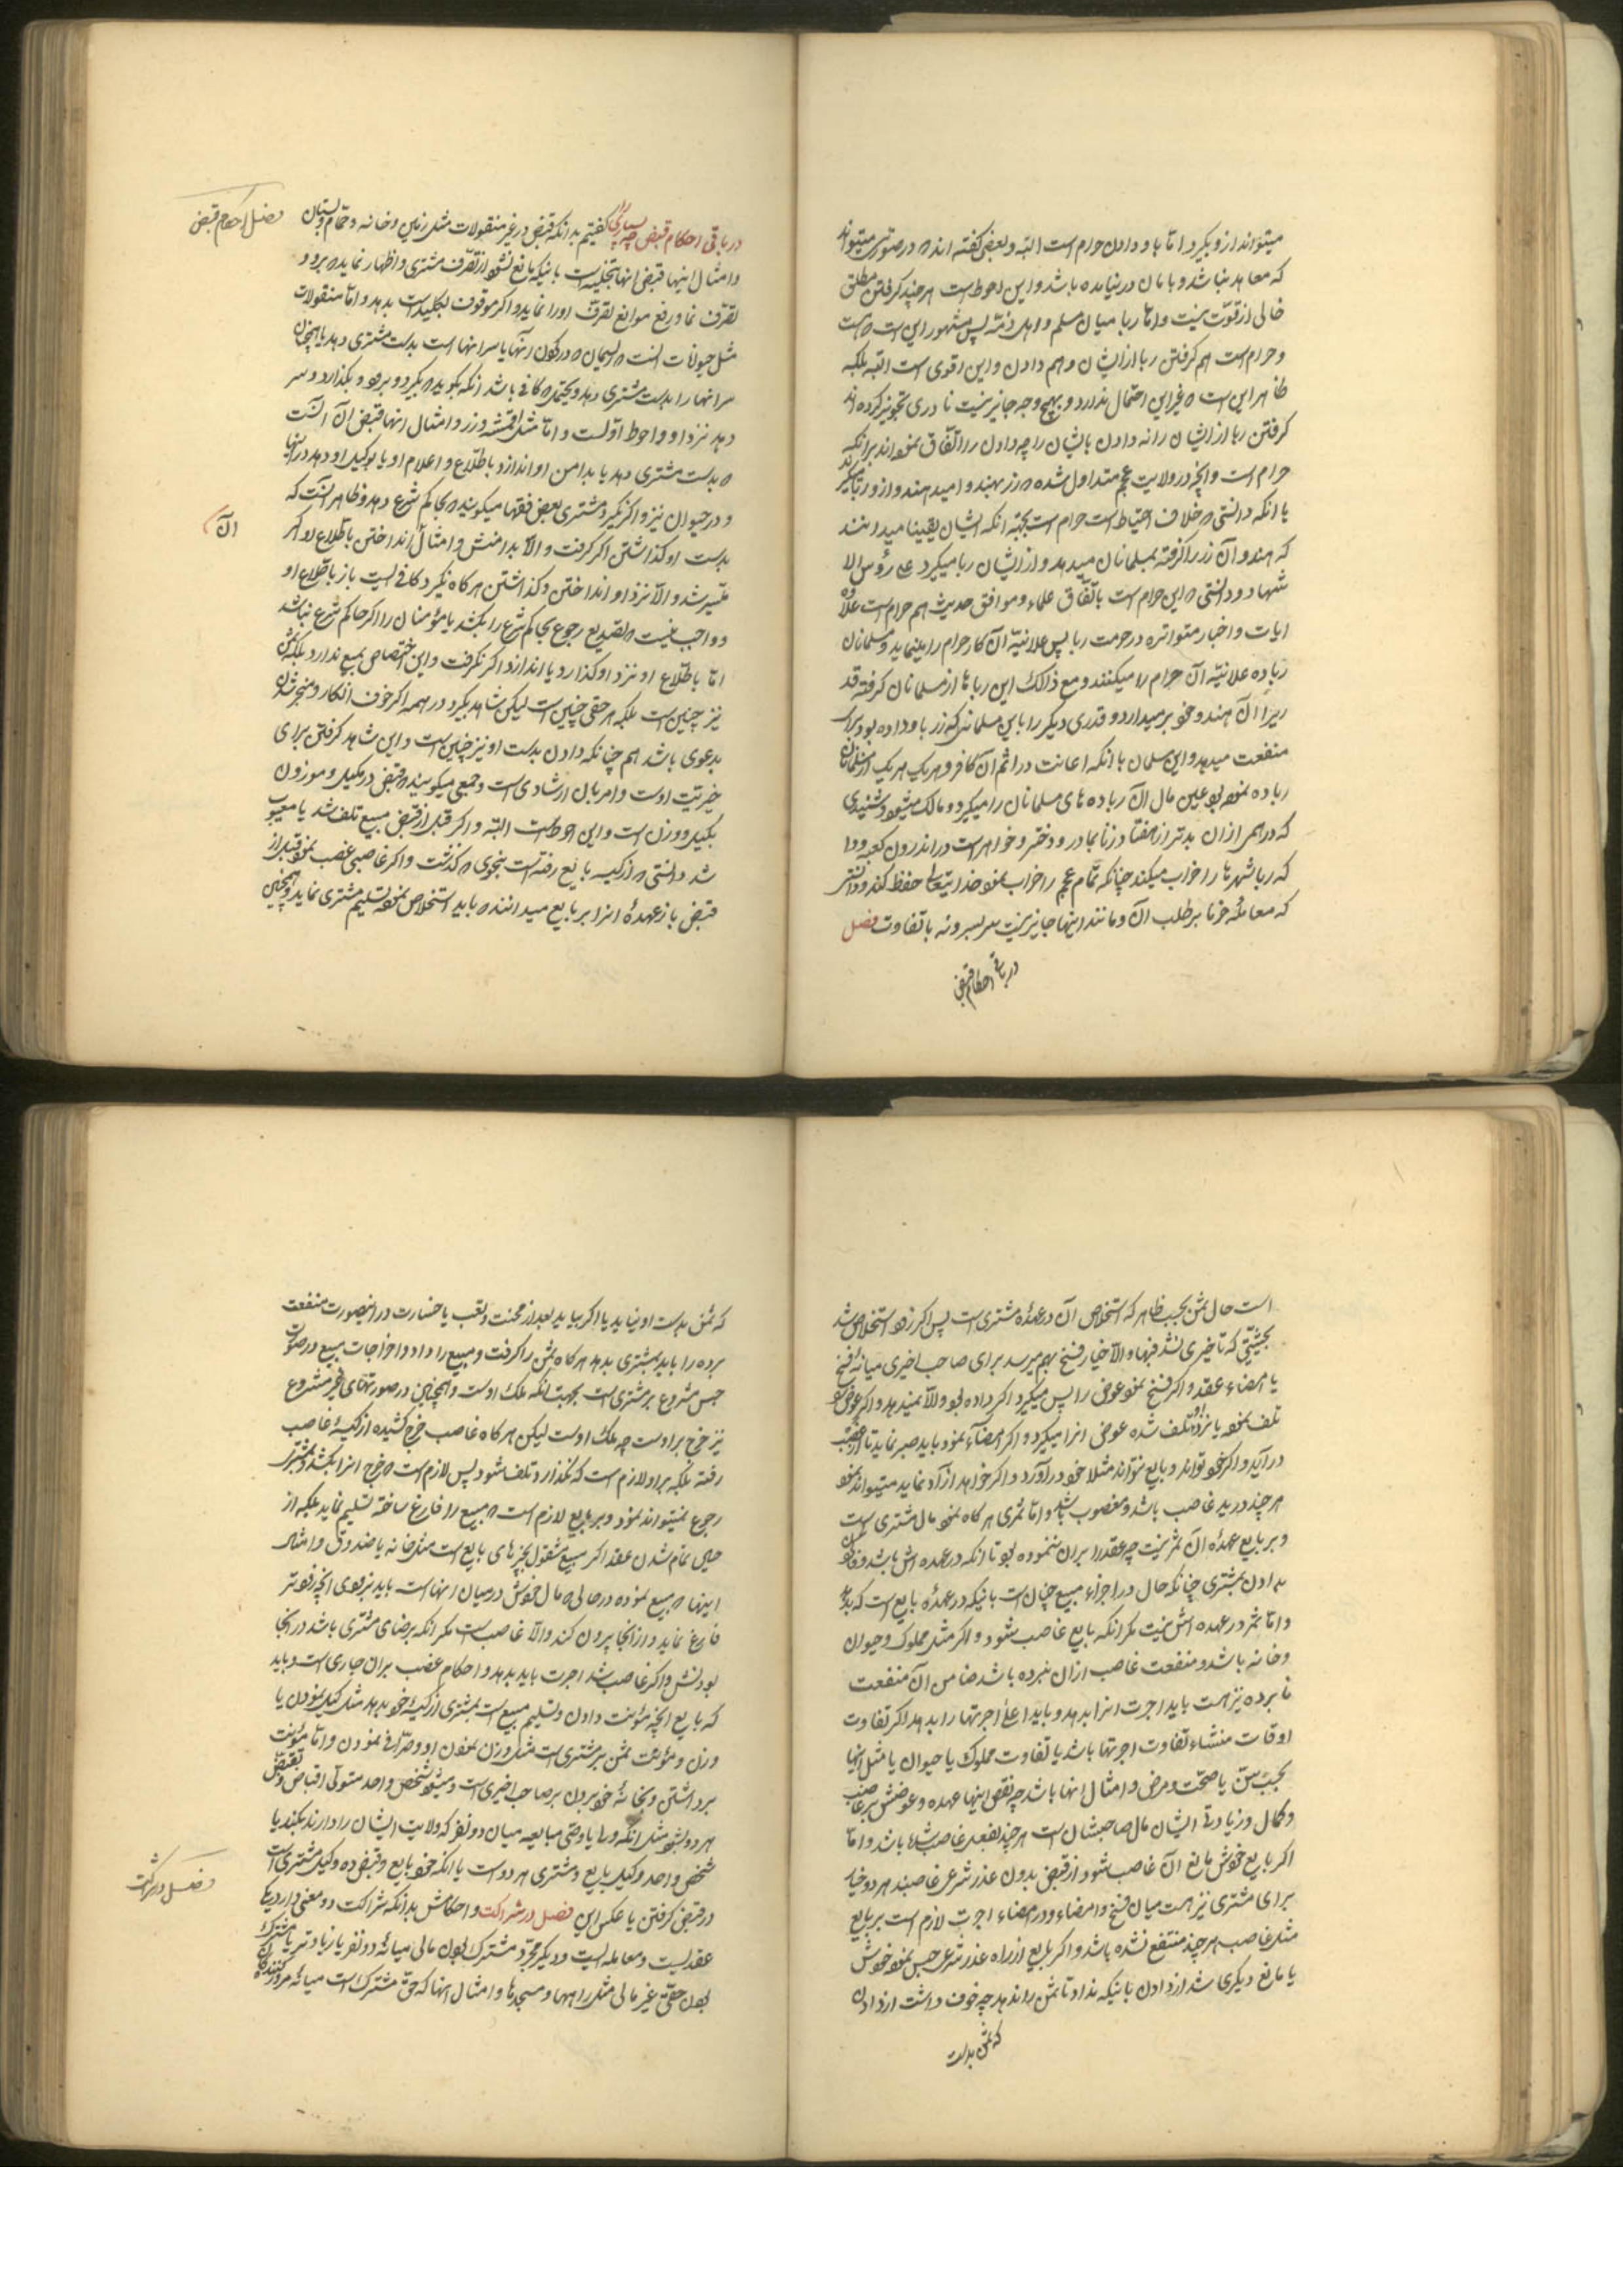 میتواند ازو بگیرد اما باو دادن حرام است البته و بعضی گفته اند که در صورتی میتواند
که معاهد نباشد و بامان در نیامده باشد و این احوط است هر چند گرفتن مطلق
خالی از قوت نیست و اما ربا میان مسلم و اهل ذمه پس مشهور این است که هست
و حرام است هم گرفتن ربا از ایشان و هم دادن و این اقوی است البته بلکه
ظاهر این است که غیر این احتمال ندارد و بهیچ وجه جایز نیست نادری تجویز کرده اند
گرفتن ربا از ایشان را نه دادن بایشان را چه دادن را اتفاق نموده اند بر آنکه
حرام است و آنچه در ولایت عجم متداول شده که زر بهندو امید هند و از او ربا میگیرند
با انکه دانستی که خلاف احتیاط است حرام است بجهة انکه ایشان یقینا میدانند
که هندو آن زر را گرفته بمسلمانان میدهد و از ایشان ربا میگیرد علی رؤس الا
شهاد و دانستی که این حرام است باتفاق علماء و موافق حدیث هم حرام است علاوه
ایات و اخبار متواتره در حرمت ربا پس علانیة آن کار حرام را مینماید و مسلمانان
ربا ده علانیة آن حرام را میکنند و مع ذلک این رباها از مسلمانان گرفته قد
ریرا آن هندو خود برمیدارد و قدری دیگر را باین مسلمانی که زر باو داده بود برای
منفعت میدهد و این مسلمان با انکه اعانت در اثم آن کافر و هر یک هر یک از مسلمانان
ربا ده نموده بود عین مال آن ربا ده های مسلمانان را میگیرد و مالک میشود و شنیدی
که درهمی از ان بدتر از هفتاد زنا بمادر و دختر و خواهر است در اندرون کعبه و دا
که ربا شهرها را خراب میکند چنانکه تمام عجم را خراب نموده خدایتعالی حفظ کند و دانستی
که معامله خرما بر طلب آن و مانند اینها جایز نیست سر بسر و نه با تفاوت فصل
در باقی احکام قبض
در باقی احکام قبض گفتیم بدانکه قبض در غیر منقولات مثل زمین و خانه و حمام و بستان
و امثال اینها قبض انها تخلیه است باینکه مانع نشود از تصرف مشتری و اظهار نماید که برو و
تصرف نما و رفع موانع تصرف او را نماید و اگر موقوف بکلید است بدهد و اما منقولات
مثل حیوانات انست که ریسمان که در گردن آنها یا سر انها است بدست مشتری دهد یا همچنان
سر انها را بدست مشتری دهد و یحتمل که کافی باشد آنکه بگوید که بگیر و ببرد و بگذارد و سر
دهد نزد او و احوط اولست و اما مثل اقمشه و زر و امثال انها قبض آن انست
که بدست مشتری دهد یا بدامن او اندازد باطلاع و اعلام او یا بوکیل او دهد در اینها
و در حیوان نیز و اگر نگیرد مشتری بعضی فقها میگویند که بحاکم شرع دهد و ظاهر انست که
بدست او گذاشتن اگر گرفت و الا بدامنش و امثال آن انداختن باطلاع او اگر
میسر شد و الا نزد او انداختن و گذاشتن هر گاه نگیرد کافی است باز باطلاع او
و واجب نیست که تصدیع رجوع بحاکم شرع را بکشد یا مؤمنان را اگر حاکم شرع نباشد
اما باطلاع او نزد او گذارد یا اندازد اگر نگرفت و این اختصاص بمبیع ندارد بلکه ثمن
نیز چنین است بلکه هر حقی چنین است لیکن شاهد بگیرد در همه اگر خوف انکار و منجر شدن
بدعوی باشد هم چنانکه دادن بدست او نیز چنین است و این شاهد گرفتن برای
خیریت اوست و امر بآن ارشادی است و جمعی میگویند که قبض در مکیل و موزون
بکیل و وزن است و این احوط است البته و اگر قبل از قبض مبیع تلف شد یا معیوب
شد دانستی که از کیسه بایع رفته است بنحوی که گذشت و اگر غاصبی غصب نموده قبل از
قبض باز عهده انرا بر بایع میدانند که باید استخلاص نموده تسلیم مشتری نماید و همچنین
فصل احکام قبض
آن
است حال ثمن بحسب ظاهر که استخلاص آن در عهده مشتری است پس اگر زود استخلاص شد
بحیثیتی که تاخیری نشد فبها و الا خیار فسخ بهم میرسد برای صاحب اخیری میانه فسخ
یا امضاء عقد و اگر فسخ نمود عوض را پس میگیرد اگر داده بود و الا نمیدهد و اگر عوض
تلف نموده یا نزد او تلف شده عوض انرا میگیرد و اگر امضاء نمود باید صبر نماید تا از غصب
در آید و اگر خود تواند و بایع نتواند مثلا خود در آورد و اگر خواهد آزاد نماید میتواند نمود
هر چند در ید غاصب باشد و مغصوب باشد و اما ثمری هر گاه نمود مال مشتری است
و بر بایع عهده آن ثمر نیست چه عقد را بر ان ننموده بود تا انکه در عهده اش باشد
بدادن بمشتری چنانکه حال در اجزاء مبیع چنان است باینکه در عهده بایع است که بدهد
و اما ثمر در عهده اش نیست مگر انکه بایع غاصب شود و اگر مثل مملوک و حیوان
و خانه باشد و منفعت غاصب ازان نبرده باشد ضامن آن منفعت
نابرده نیز هست باید اجرت انرا بدهد و باید اعلی اجرتها را بدهد اگر تفاوت
اوقات منشاء تفاوت اجرتها باشد یا تفاوت مملوک یا حیوان یا مثل اینها
بحسب سن یا صحت و مرض و امثال انها باشد چه نقص اینها عهده و عوضش بر غاصب
و کمال و زیادتی ایشان مال صاحبشان است هر چند بفعل غاصب باشد و اما
اگر بایع خودش مانع آن غاصب شود از قبض بدون عذر شرعی غاصبند هر دو خیار
برای مشتری نیز هست میان فسخ و امضاء و در امضاء اجرت لازم است بر بایع
مثل غاصب هر چند منتفع نشده باشد و اگر بایع از راه عذر شرعی حبس نمود خودش
یا مانع دیگری شد از دادن باینکه نداد تا ثمن را ندهد چه خوف داشت از دادن
که ثمن بدست
که ثمن بدست او نیاید یا اگر بیاید بعد از محنت و تعب یا خسارت در اینصورت منفعت
برده را باید بمشتری بدهد هر گاه ثمن را گرفت و مبیع را داد و اخراجات مبیع در صورت
حبس مشروع بر مشتری است بجهت انکه ملک اوست و همچنین در صورتهای غیر مشروع
نیز خرج بر اوست چه ملک اوست لیکن هر گاه غاصب خرج کشیده از کیسه غاصب
رفته بلکه بر او لازم است که نگذارد تلف شود پس لازم است که خرج انرا بکشد و بمشتری
رجوع نمیتواند نمود و بر بایع لازم است که مبیع را فارغ ساخته تسلیم نماید بلکه از
حین تمام شدن عقد اگر مبیع مشغول بچیزهای بایع است مثل خانه یا صندوق و امثال
اینها که مبیع نموده در حالی که مال خودش در میان انها است باید بزودی انچه زودتر
فارغ نماید و از انجا بیرون کند و الا غاصب است مگر انکه برضای مشتری باشد در انجا
بودنش و اگر غاصب شد اجرت باید بدهد و احکام غصب بر ان جاری است و باید
که بایع انچه مؤنت دادن و تسلیم مبیع است بمشتری از کیسه خود بدهد مثل کیل نمودن یا
وزن و مؤنت ثمن بر مشتری است مثل وزن نمودن او و صرافی نمودن و اما مؤنت
برداشتن و بخانه خود بردن بر صاحب اخیری است و میشود شخص واحد متولی اقباض و قبض
هر دو بشود مثل انکه ولی یا وصی مبایعه میان دو نفر که ولایت ایشان را دارند بکند یا
شخص واحد وکیل بایع و مشتری هر دو است یا انکه خود بایع و قبض ده وکیل مشتری است
در قبض گرفتن یا عکس این فصل در شراکت و احکامش بدانکه شراکت دو معنی دارد یکی
عقدیست و معامله ایست و دیگر مجرد مشترک بودن مالی میانه دو نفر یا زیادتر یا مشترک
بودن حقی غیر مالی مثل راهها و مسجدها و امثال انها که حق مشترک است میانه مرور کنندگان
فصل در شراکت